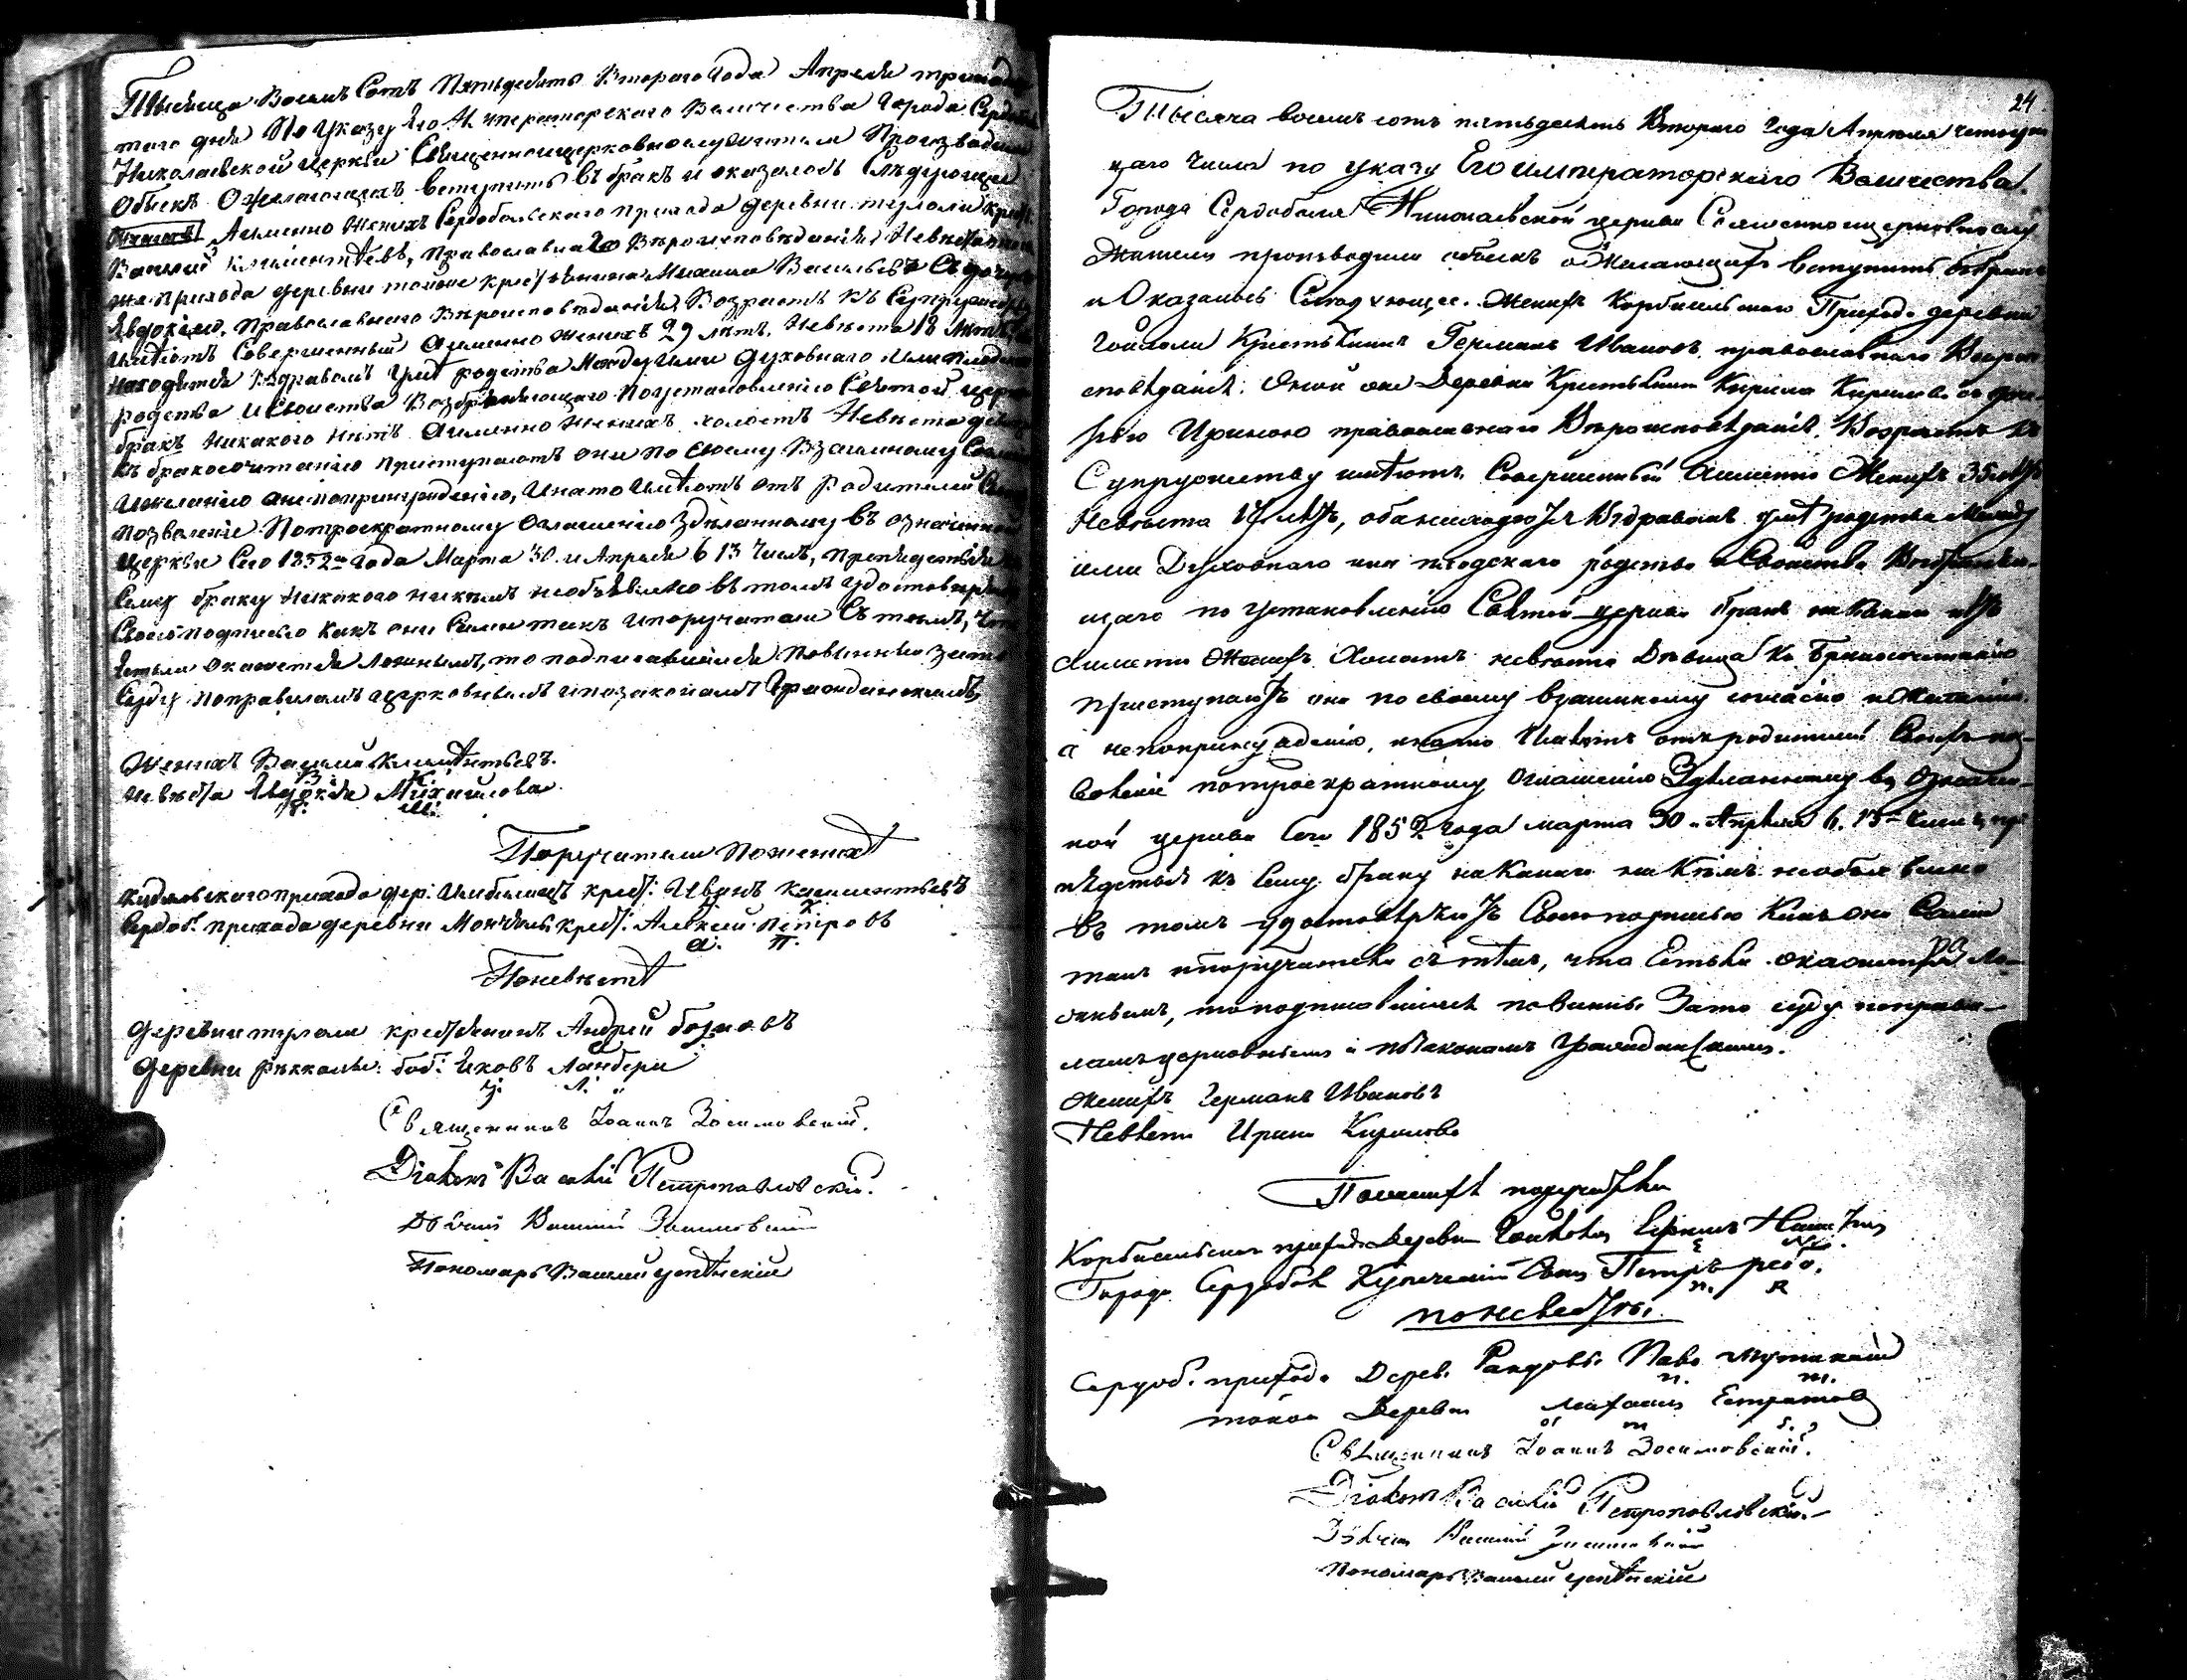 Тысяча Восемь Сотъ Пятьдесятъ Втораго Года Апреля тринадца
таго дня По Указу Его Императорскаго Величества Города Сердоболя
Николаевской Церкви Священноцерковнослужители Производили
Обыскъ О желающихъ вступить въ бракъ и оказалось Слѣдующее
Аименно Женихъ Сердобольскаго прихода деревни
Василий Климентьевъ, Православнаго Вѣроисповѣдания, Невѣста
же Прихода деревни тойже крестьянина Михаила Васильева Съ дочерью
Евдокіею, Православнаго Вѣроисповѣдания, Возрастъ Къ Супружеству
имѣютъ Совершенный Аименно Женихъ 29 лѣтъ, Невѣста 18 лѣтъ
находятся Въздравомъ Умѣ родства Между Ими Духовнаго Или плотскаго
родства И Свойства Возбраняющаго По установленію Святой церкви
бракъ Никакого Нѣтъ Аименно Женихъ холостъ Невѣста девица
Къ бракосочетанию Приступаютъ они По своему Взаимному Согласию
Ижеланию Анепопринуждению, Инато Имѣютъ отъ Родителей Своихъ
Позволение Потроекратному Оглашению Здѣланному въ означенной
Церкви Сего 1852го Года Марта 30. и Апреля 6 13 Числъ, Препядствия
Сему браку Никакого никѣмъ необъявлено въ томъ Удостоверяютъ
Своею подписью Какъ они Сами такъ Ипоручатели Съ тѣмъ, Что
Естьли Окажется Ложнымъ, то подписавшияся Повинны За то
Суду По правиламъ церковнымъ ипозаконамъ Гражданскимъ,
Женихъ Василий Климѣнтьевъ.
В. К.
Невѣста Евдокия Михаилова
М.
Поручатели Поженихѣ
прихода дер: крест: Иванъ Климентьевъ
Сердоб. прихода деревни крест: Алексей Петровъ
а. П.
Поневѣстѣ
деревни крестьянинъ Андрей
деревни боб: Яковъ
Я. Л.
Священникъ Іоаннъ Зосимовский.
Діаконъ Василій Петропавловскій.
Василий Зосимовский
Пономарь Василий Успѣнский
24
Тысяча восемь сотъ пятьдесятъ Втораго Года Апреля четырнад
цаго Числа по указу Его императорскаго Величества
Города Сердоболя Николаевской церкви Священноцерковнослу
жители производили обыскъ о Желающихъ вступить въ бракъ
и Оказалось Следующее. Женихъ Прихода деревни
Крестьянинъ Германъ Ивановъ, православнаго Вѣрои
споведания. Оной же Деревни Крестьянина Кирила Кирилова съ доче
рью Ириною православнаго Вѣроисповѣдания, Возрастъ къ
Супружеству имѣютъ Совершенный Аименно Женихъ 35 лѣтъ
Невѣста лѣтъ, оба находятся Въздравомъ умѣ родства Между
ими Духовнаго или плодскаго родства и Свойства Возбраняю
щаго по установлению Святой церкви бракъ никакого нѣтъ
Аименно Женихъ Холостъ невѣста Дѣвица къ Бракосочетанию
приступаютъ они по своему взаимному согласию и Желанию
а непопринуждению, инато Имѣютъ отъ родителей Своихъ поз
воление потроекратному Оглашению Здѣланному въ Означен
ной церкви Сего 1852 года марта 30 и Апреля 6. 13го Числъ пре
пядствия къ Сему браку никакого никѣмъ необъявлено
Въ томъ удостовѣряютъ Своею подписью Какъ они Сами
такъ ипоручатели съ тѣмъ, что Естьли окажется ло
жнымъ, то подписавшияся повинны За то суду поправи
ламъ церковнымъ и позаконамъ Гражданскимъ.
Женихъ Германъ Ивановъ
Невѣста Ирина Кирилова
Поженихѣ поручатели
прихода Деревни
Города Сердоболя Купеческий Сынъ Петръ
п.
поневѣсты.
Сердоб. прихода Дерев.
п. м.
тойже Деревни
Священникъ Іоаннъ Зосимовский.
Діаконъ Василій Петропавловскій.
Василий Зосимовский
Пономарь Василий Успѣнский